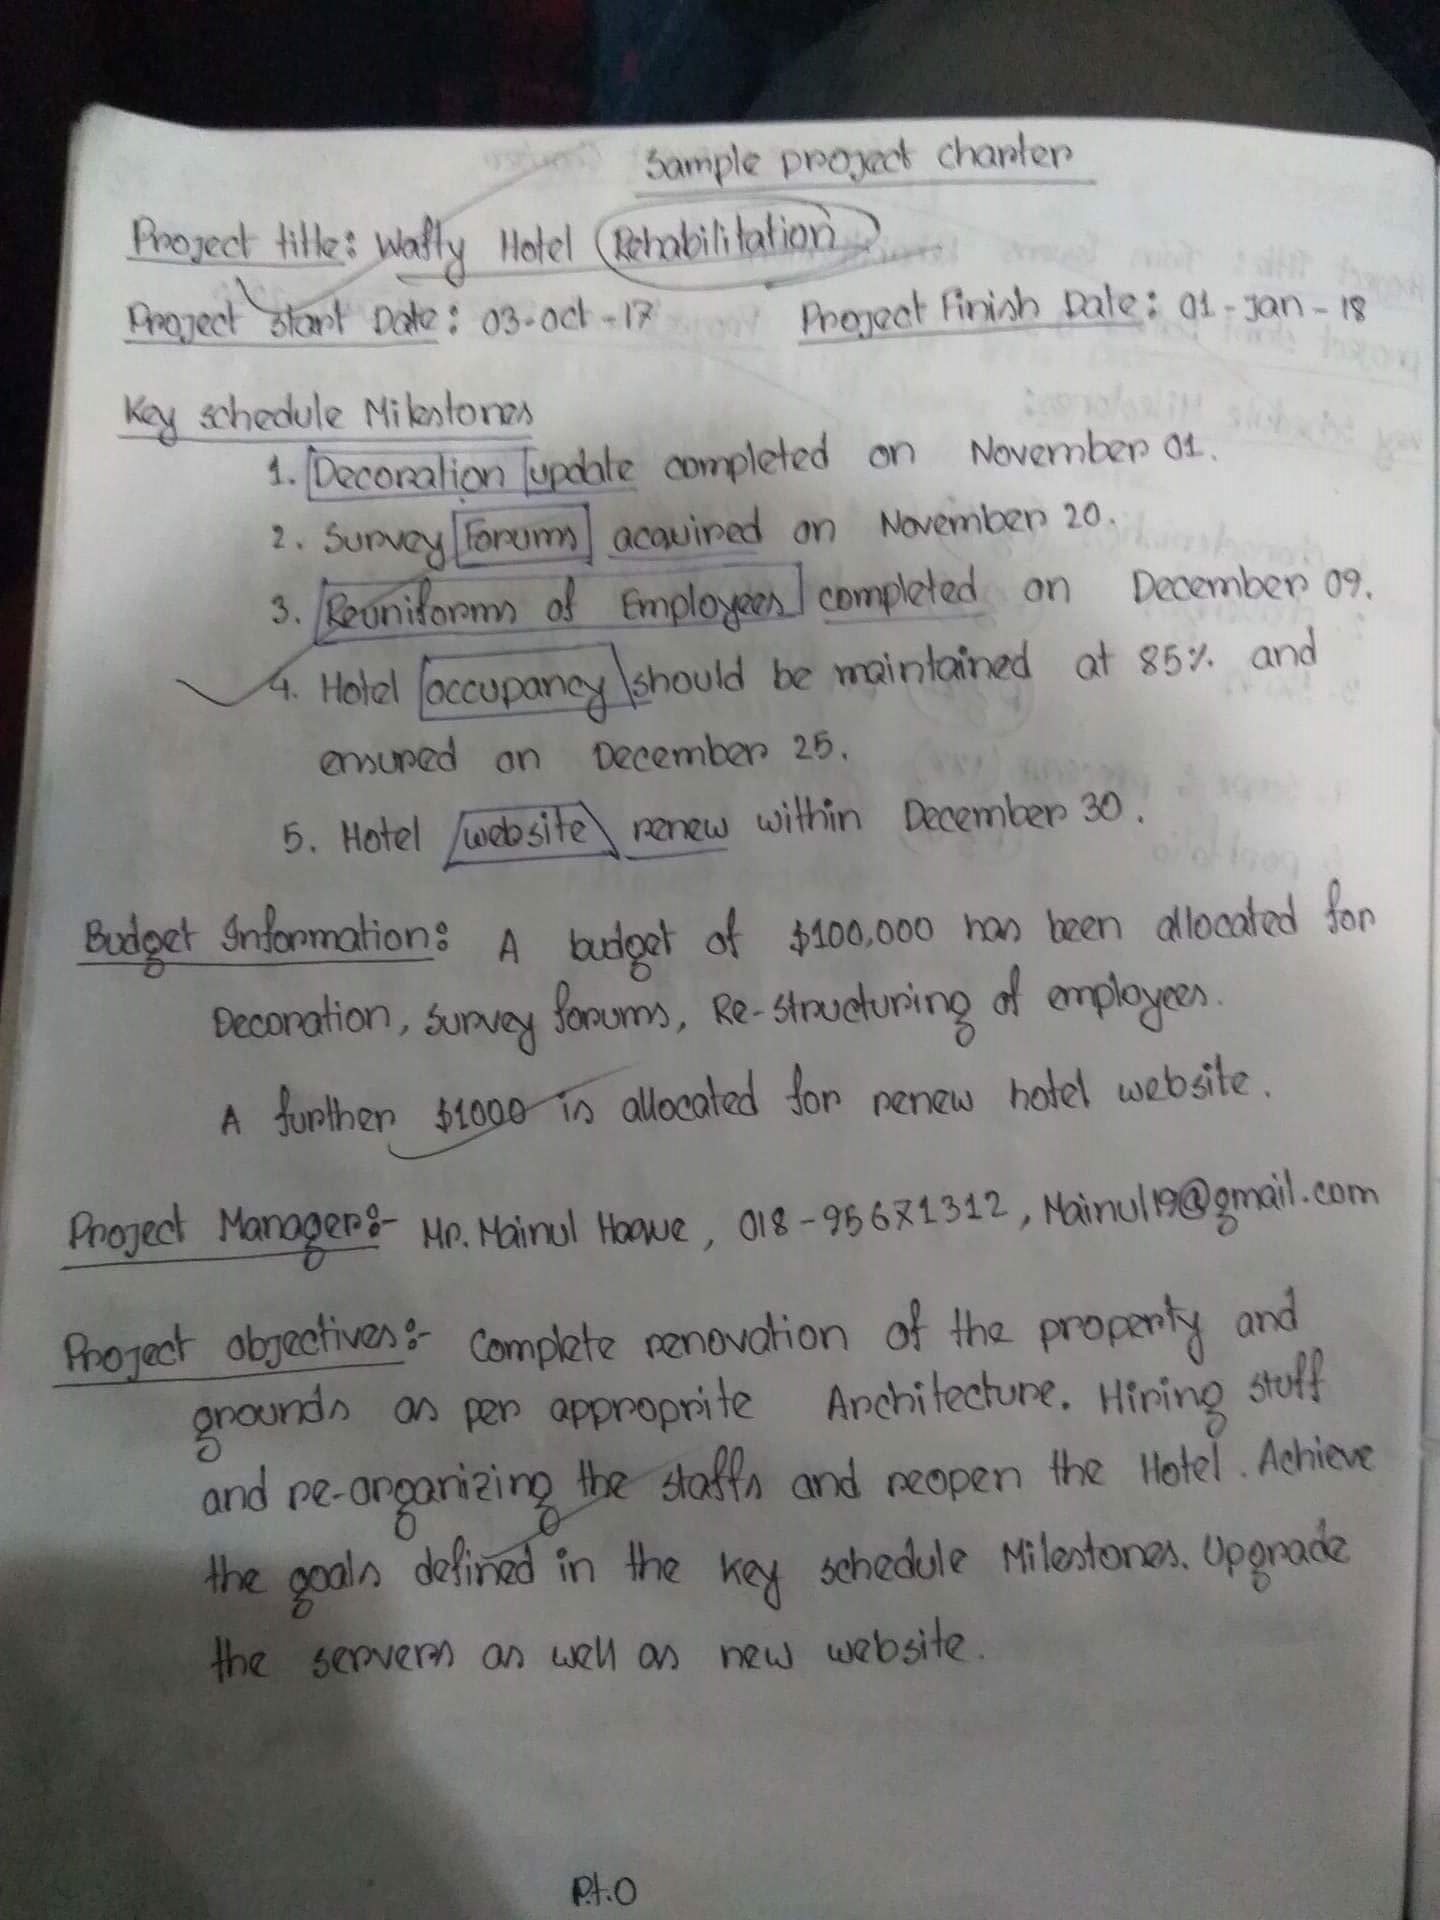 Sample project charter
Project title: Wafty Hotel Rehabilitation
Project start Date: 03-oct-17 Project Finish Date: 01-Jan-18
Key schedule Milestones
1. Decoration update completed on November 01.
2. Survey Forums acquired on November 20.
3. Reuniforms of Employees completed on December 09.
4. Hotel occupancy should be maintained at 85% and
ensured on December 25.
5. Hotel website renew within December 30.
Budget Information: A budget of $100,000 has been allocated for
Decoration, Survey forums, Re-structuring of employees.
A further $1000 is allocated for renew hotel website.
Project Manager:- Mr. Mainul Haque, 018-95671312, Mainul19@gmail.com
Project objectives:- Complete renovation of the property and
grounds as per approprite Architecture. Hiring stuff
and re-organizing the staffs and reopen the Hotel. Achieve
the goals defined in the key schedule Milestones. Upgrade
the servers as well as new website.
P.t.O